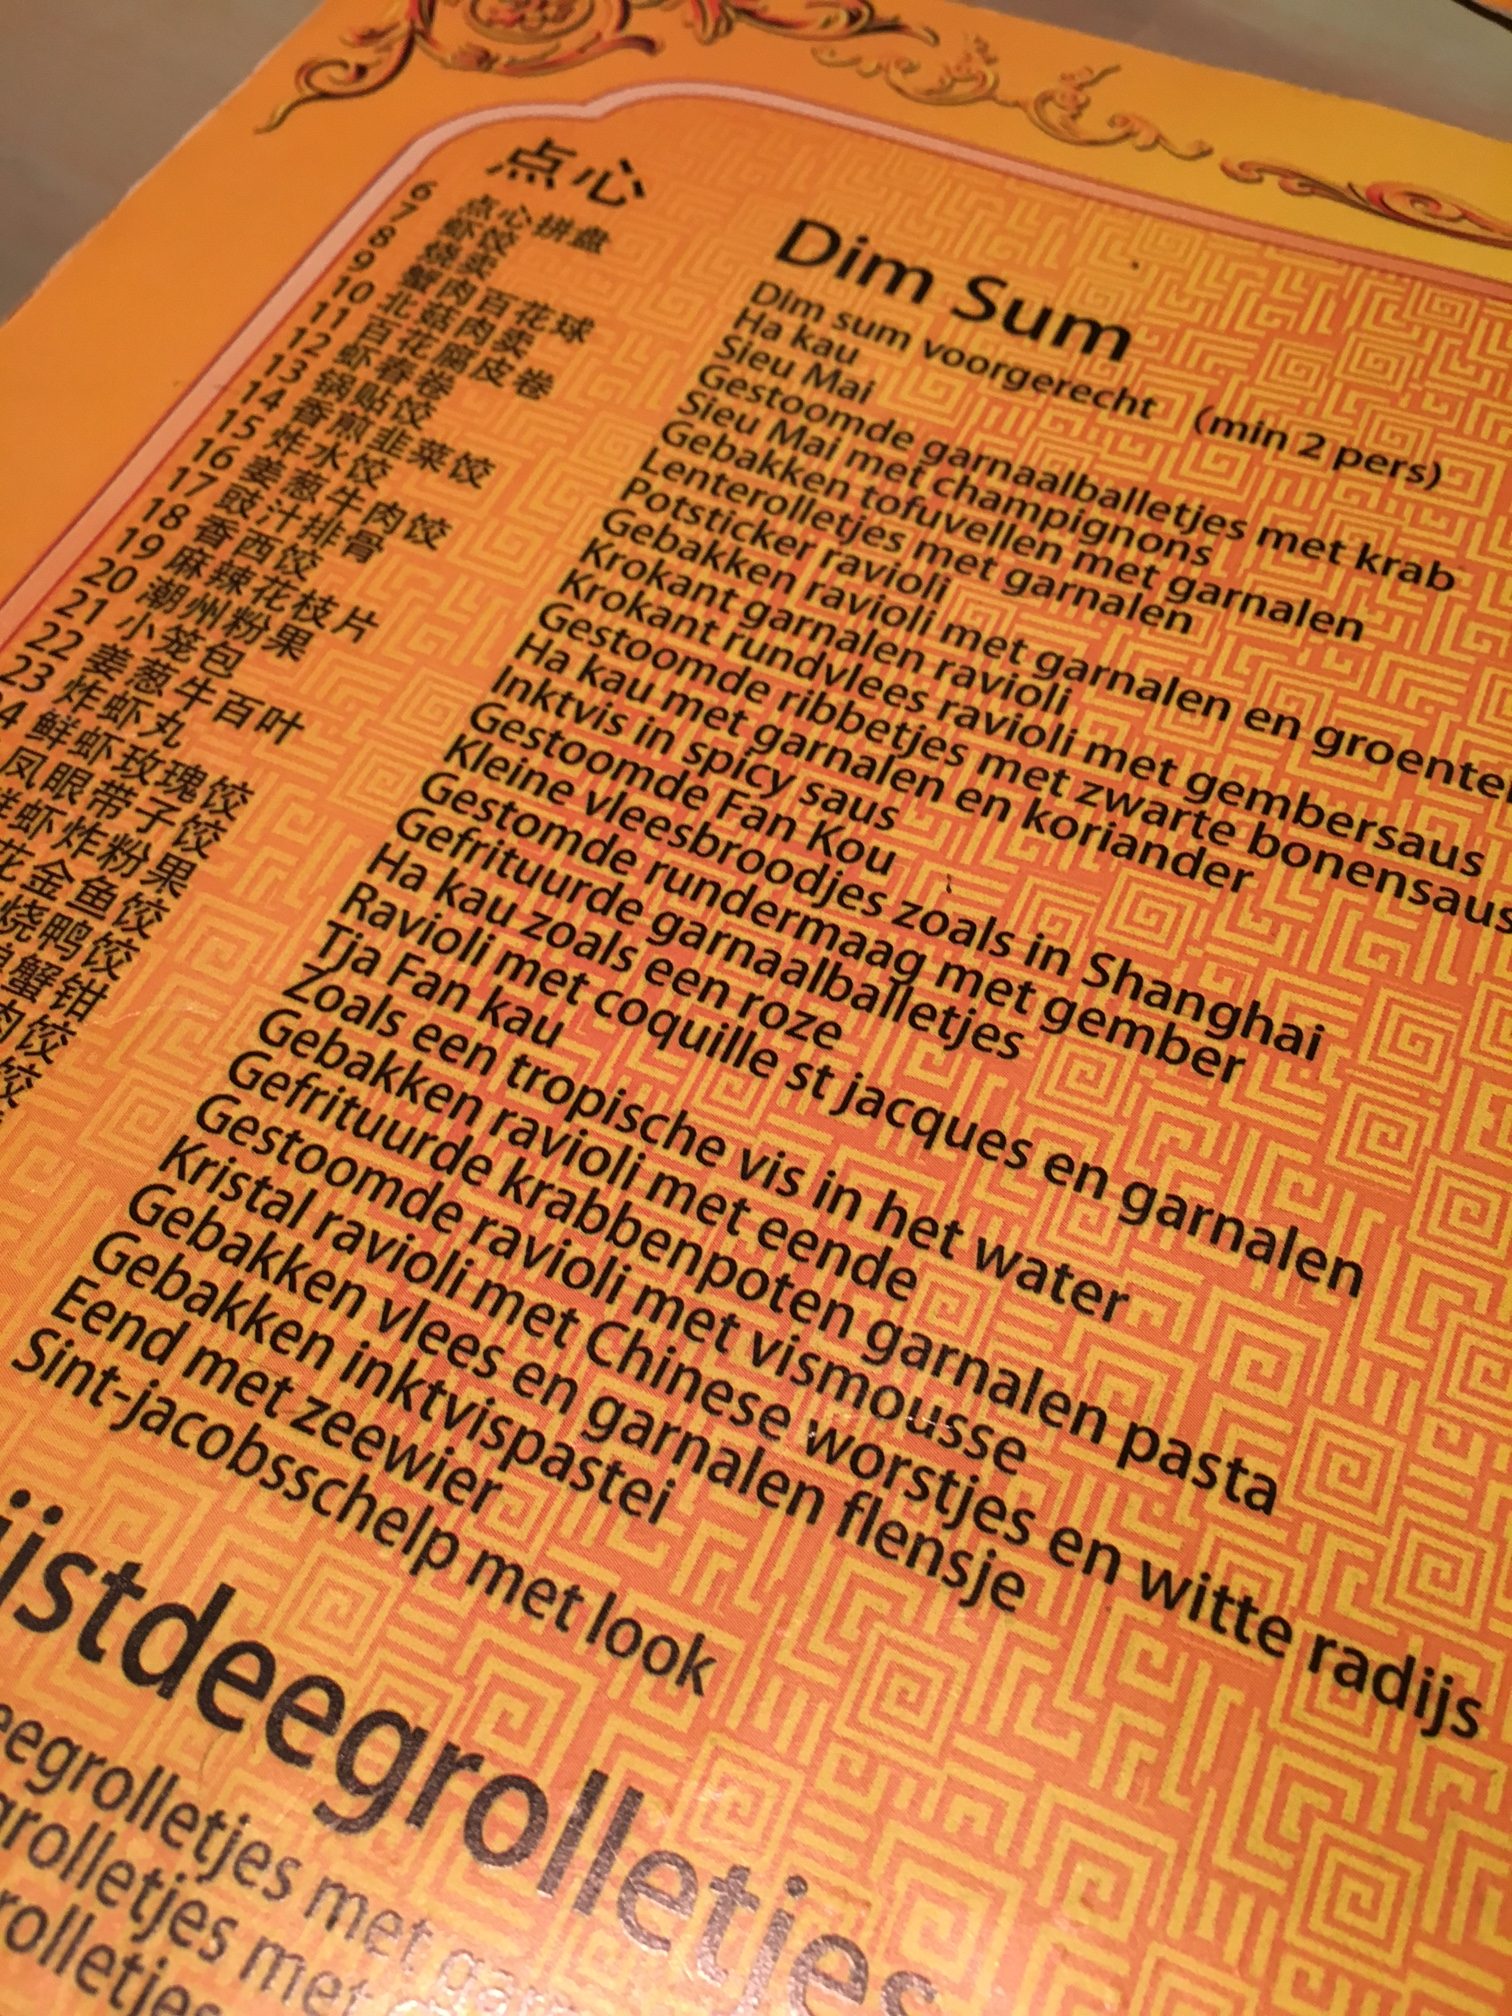 点心
Dim Sum
6 点心拼盘 Dim sum voorgerecht (min 2 pers)
7 虾饺 Ha kau
8 烧卖 Sieu Mai
9 蟹肉百花球 Gestoomde garnaalballetjes met krab
10 北菇肉卖 Sieu Mai met champignons
11 百花腐皮卷 Gebakken tofuvellen met garnalen
12 虾春卷 Lenterolletjes met garnalen
13 锅贴饺 Potsticker ravioli
14 香煎韭菜饺 Gebakken ravioli met garnalen en groente
15 炸水饺 Krokant garnalen ravioli
16 姜葱牛肉饺 Krokant rundvlees ravioli met gembersaus
17 豉汁排骨 Gestoomde ribbetjes met zwarte bonensaus
18 香西饺 Ha kau met garnalen en koriander
19 麻辣花枝片 Inktvis in spicy saus
20 潮州粉果 Gestoomde Fan Kou
21 小笼包 Kleine vleesbroodjes zoals in Shanghai
22 姜葱牛百叶 Gestomde rundermaag met gember
23 炸虾丸 Gefrituurde garnaalballetjes
鲜虾玫瑰饺 Ha kau zoals een roze
凤眼带子饺 Ravioli met coquille st jacques en garnalen
虾炸粉果 Tja Fan kau
金鱼饺 Zoals een tropische vis in het water
烧鸭饺 Gebakken ravioli met eende
蟹钳 Gefrituurde krabbenpoten garnalen pasta
肉饺 Gestoomde ravioli met vismousse
饺 Kristal ravioli met Chinese worstjes en witte radijs
Gebakken vlees en garnalen flensje
Gebakken inktvispastei
Eend met zeewier
Sint-jacobsschelp met look
ijstdeegrolletjes
eegrolletjes met
grolletjes met
rolletjes